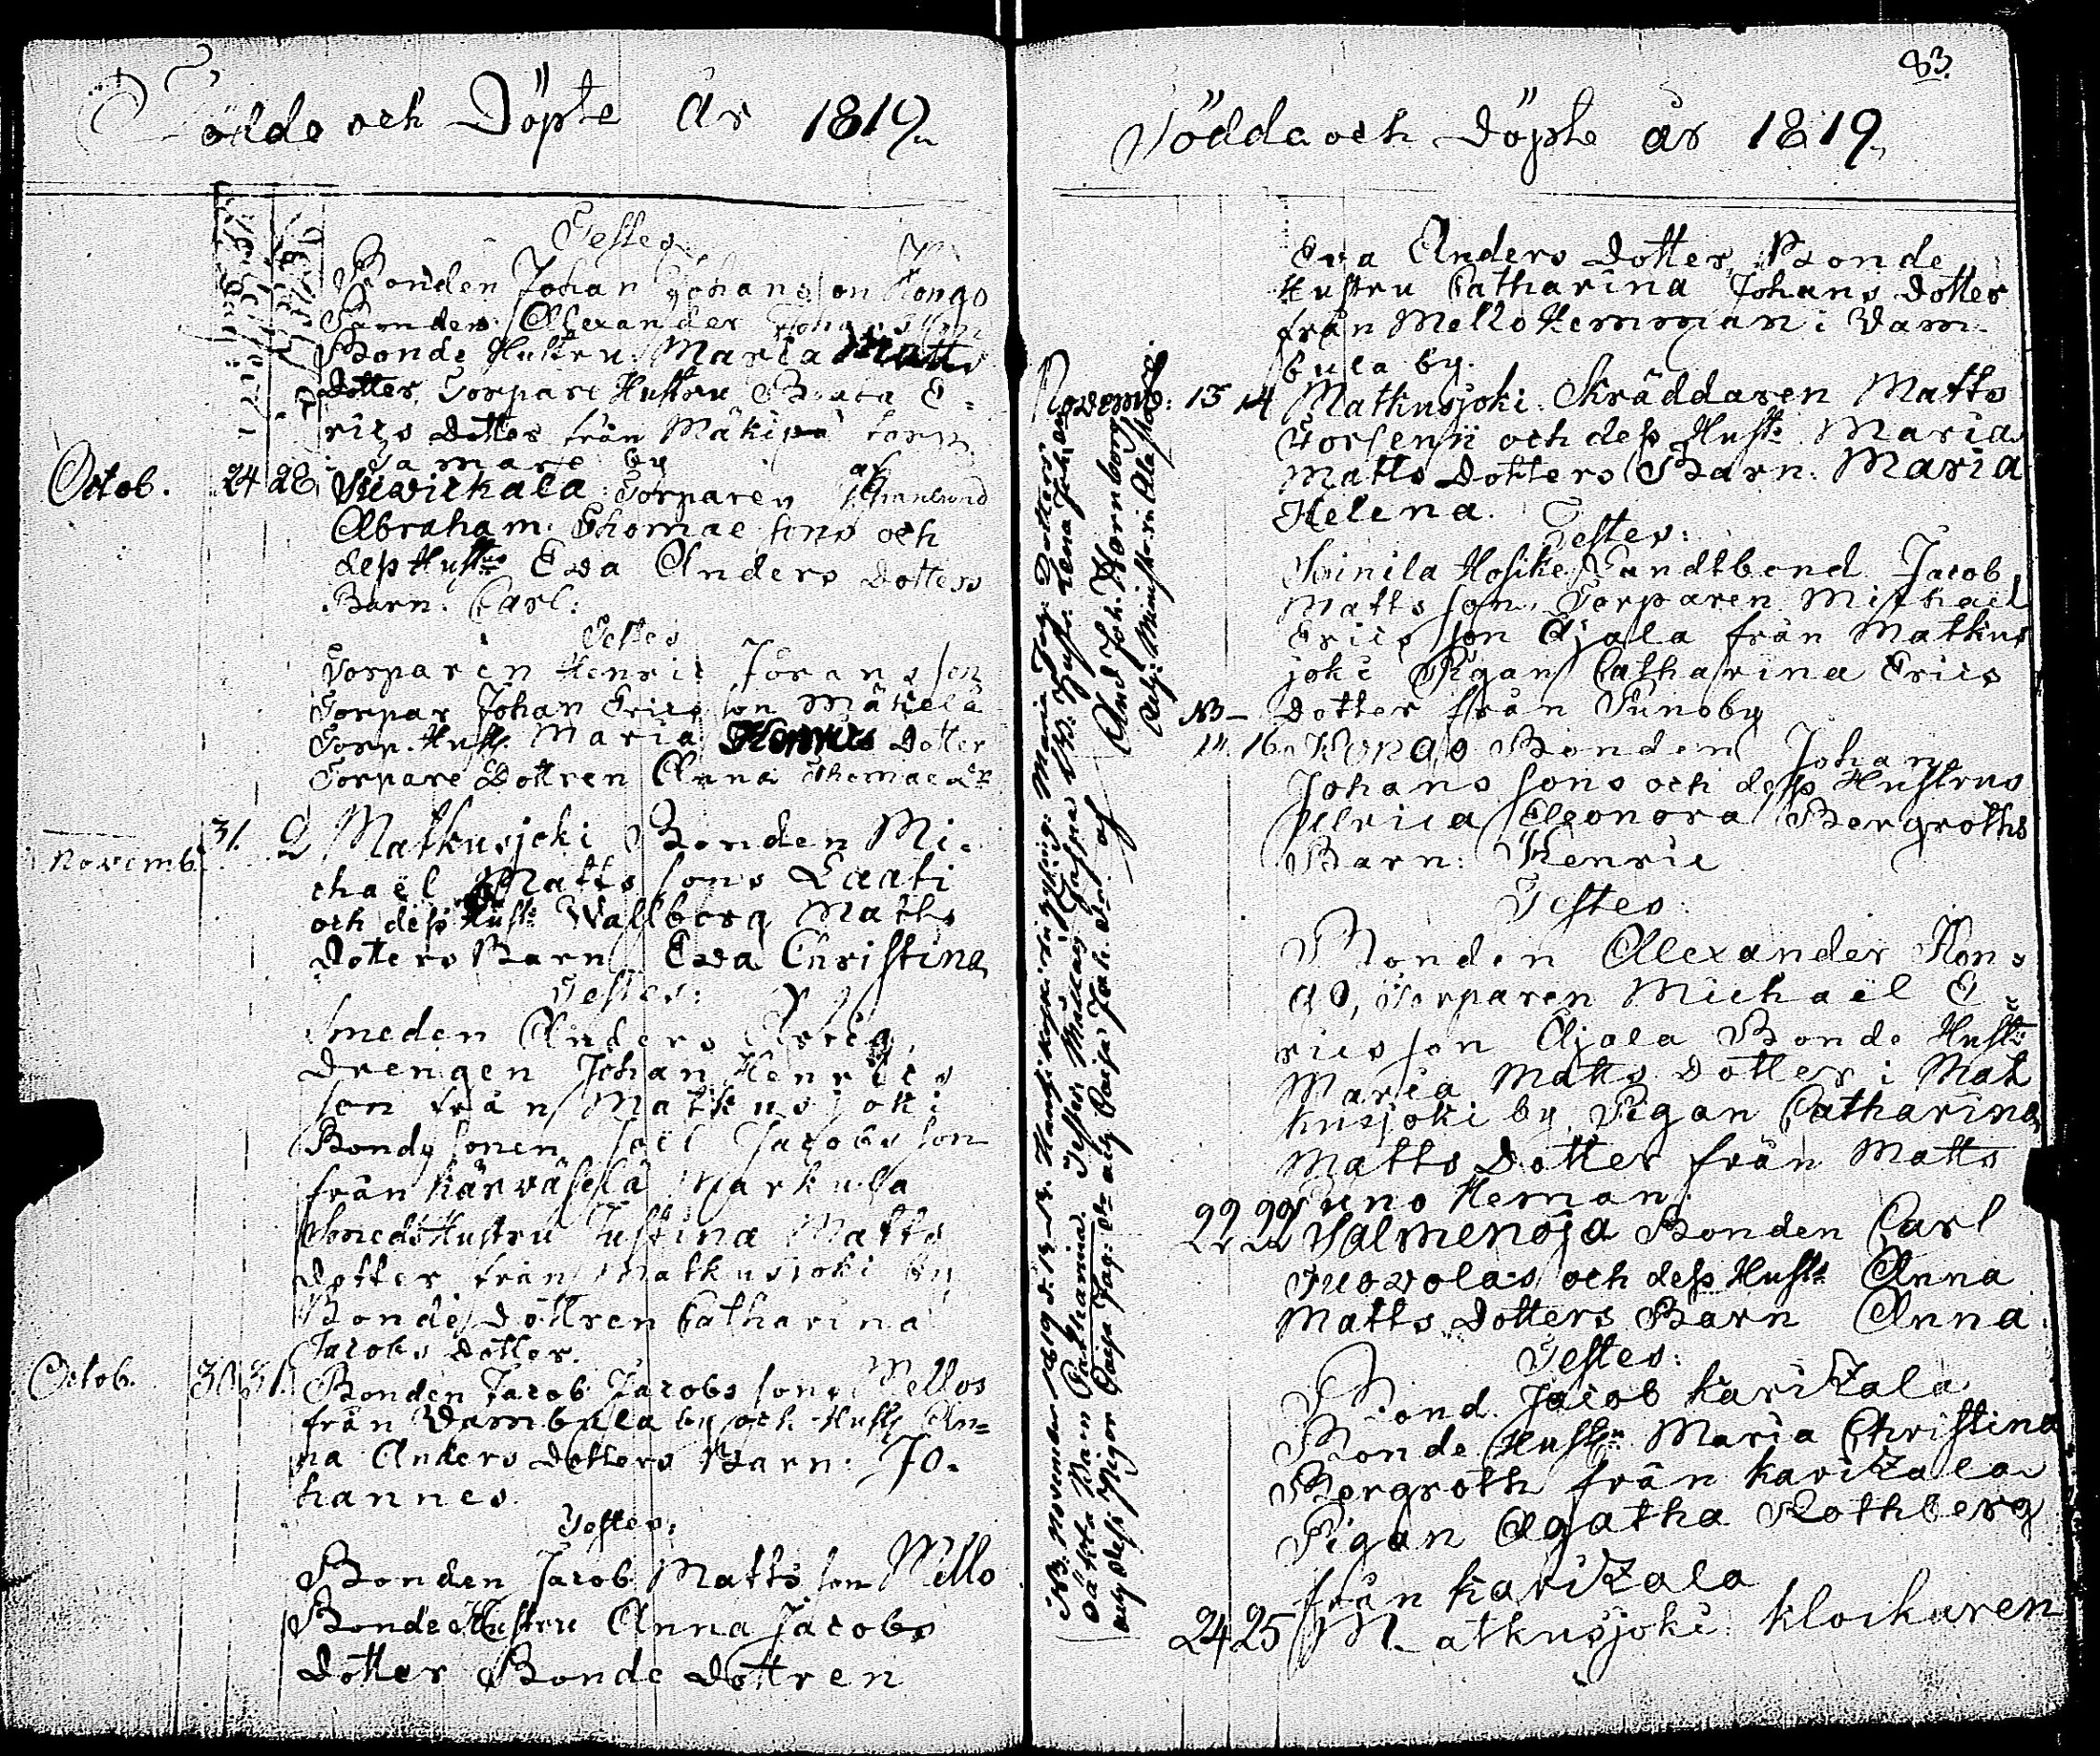 Födde och Döpte År 1819
Testes
Bonden Johan Johansson Kongo
Bonden Alexander Johansson
Bonde Hustru Maria Matts
Dotter, Torpare Hustru Beata E-
rics Dotter från Mäkipä torp
i Jamare by
Octob. 24 28 Torparen
Abraham Thomae sons och
dess Hustr Eva Anders Dotters
Barn. Carl:
Testes
Torparen Henric Joransson
Torpar Johan Ericsson Mäkelä
Torp. Hust. Maria Henrics Dotter
Torpare Dottren Anna Thomae dr
Novemb. 31. 2 Matkusjoki Bonden Mi-
chaël Matts sons Laati
och dess Hustr Wallborg Matts
Dotters Barn Eva Christina
Testes:
Smeden Anders
Drengen Johan Henrics
son från Matkusjoki
Bonde sonen Joël Jacobs son
från Kärväselä Markula
Smeds Hustru Justina Matts
dotter från Matkusjoki by
Bonde Dottren Catharina
Jacobs Dotter.
Octob. 30 31 Bonden Jacob Jacobs sons Mellos
från Vambula by och Hust An-
na Anders Dotters Barn: Jo-
hannes.
Testes:
Bonden Jacob Matts son Mello
Bonde Hustru Anna Jacobs
Dotter Bonde Dottren
83.
Födde och Döpte år 1819
Eva Anders Dotter, Bonde
Hustru Catharina Johans Dotter
från Mello Hemman i Vam-
bula by.
Novemb: 13 14 Matkusjoki. Skräddaren Matts
och dess Hust. Maria
Matts Dotters Barn. Maria
Helena.
Testes:
Hosike Landtbond Jacob
Matts son, Torparen Michaël
Erics son Ojala från Matkus
joki Pigan Catharina Erics
NB- Dotter från Sunoby
14. 16 Kongo Bonden Johan
Johans sons och dess Hustrus
Ulrica Eleonora Bergroths
Barn: Henric
Testes:
Bonden Alexander Kon-
go, Torparen Michaël E-
rics son Ojala Bonde Hustr
Maria Matts Dotter i Mat
kusjoki by, Pigan Catharina
Matts Dotter från Matts
Suno Heman.
22 22 Salmenoja Bonden Carl
Juovolas och dess Hustr Anna
Matts Dotters Barn Anna.
Testes:
Bond. Jacob Karikzala
Bonde Hustru Maria Christina
Bergroth från Karikzala
Pigan Agatha Rothberg
från Karikzala
24 25 Matkusjoki Klockaren
NB: November 1819 d. Maria Jac: Dotters
oäkta Barn Catharina. Testes
And. Joh. Hornborg